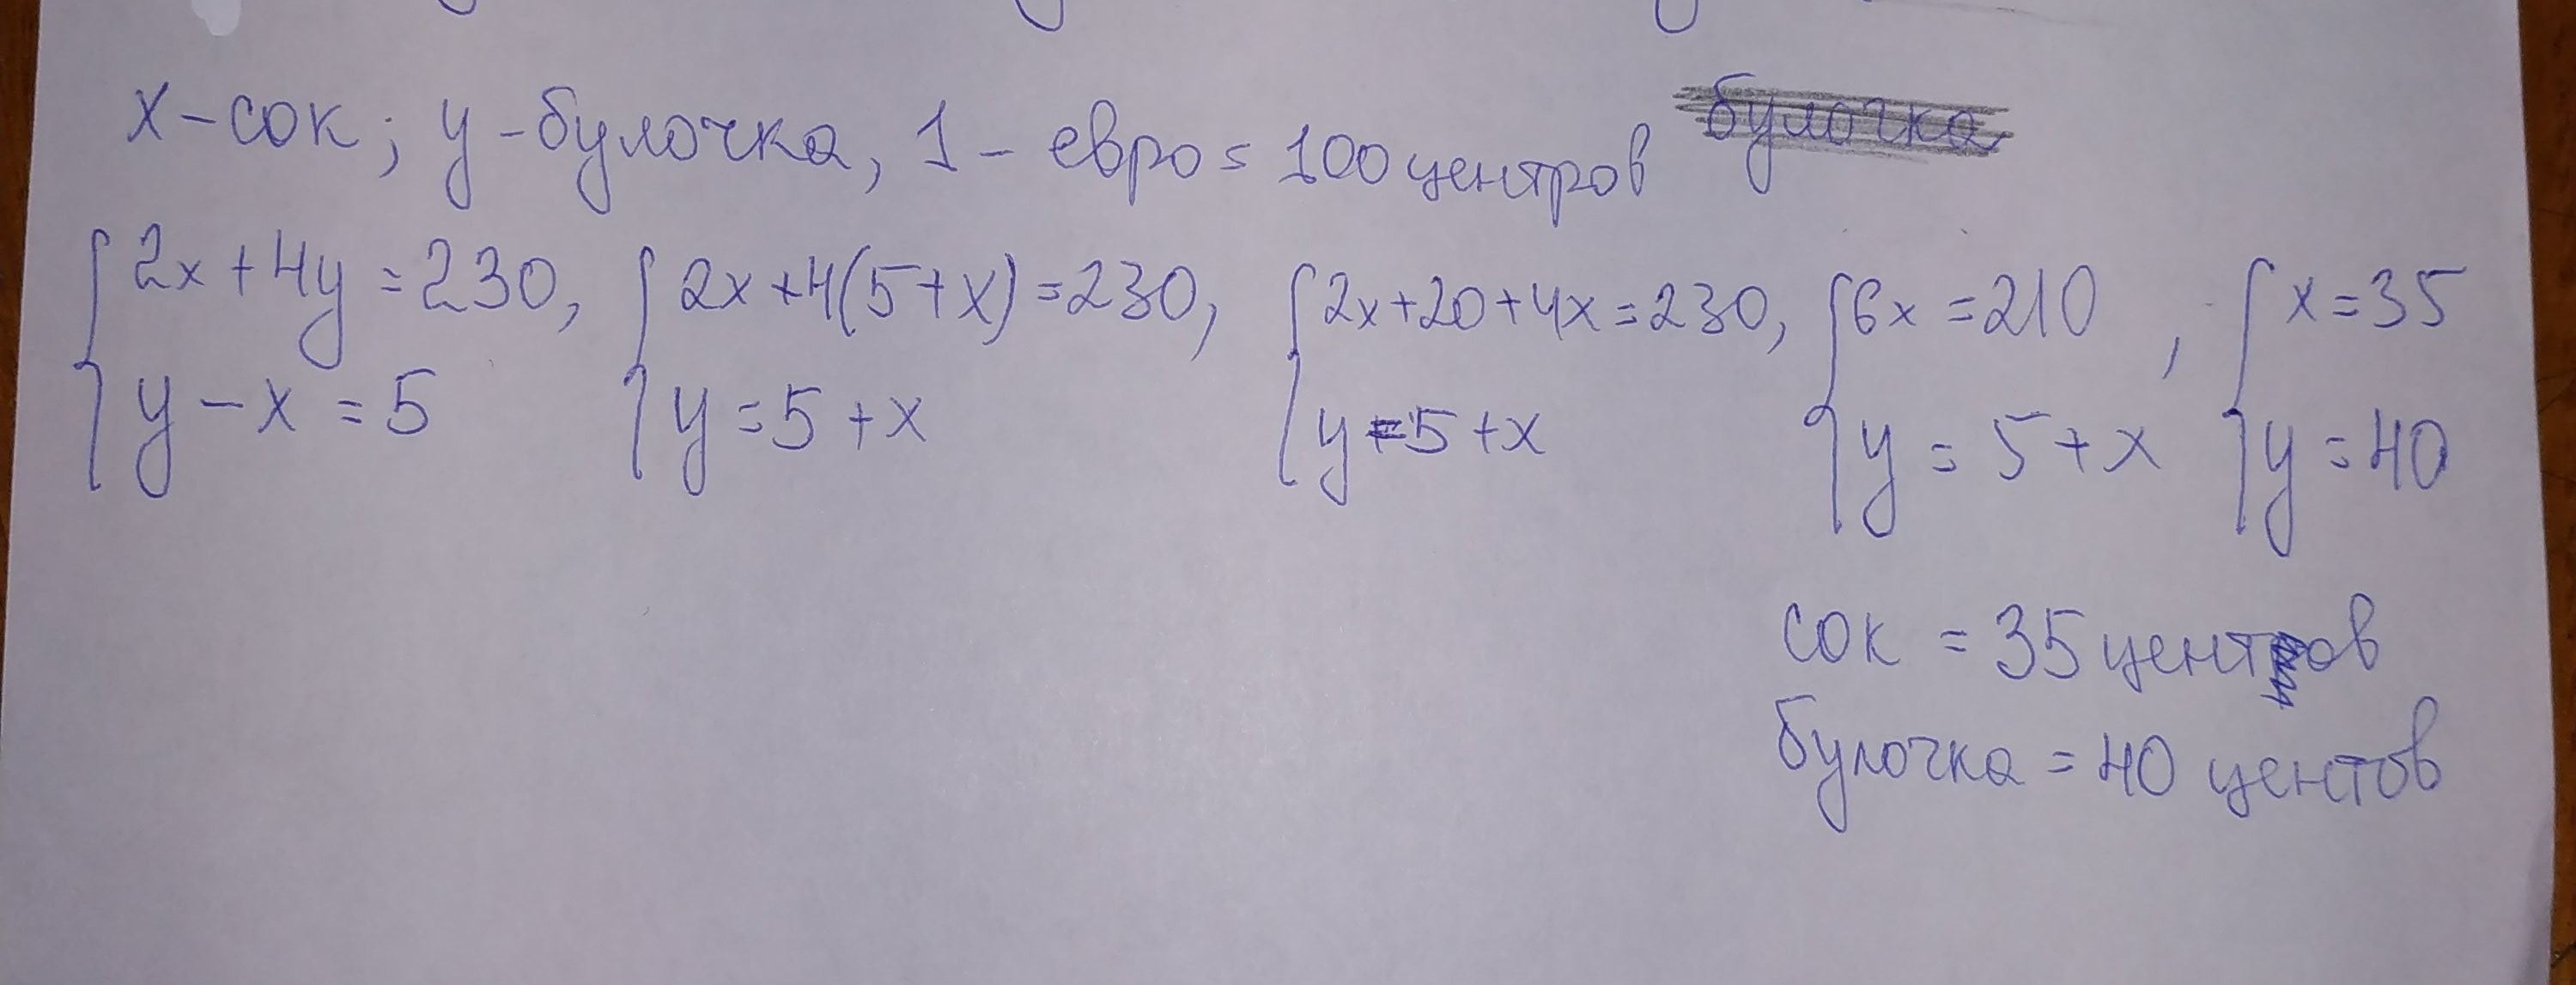 x – сок; у – булочка, 1 – евро = 100 центров
2x + 4y = 230, 2x + 4(5 + x) = 230, 2x + 20 + 4x = 230, 6x = 210, x = 35
y – x = 5 y = 5 + x y = 5 + x y = 5 + x y = 40
сок = 35 центов
булочка = 40 центов